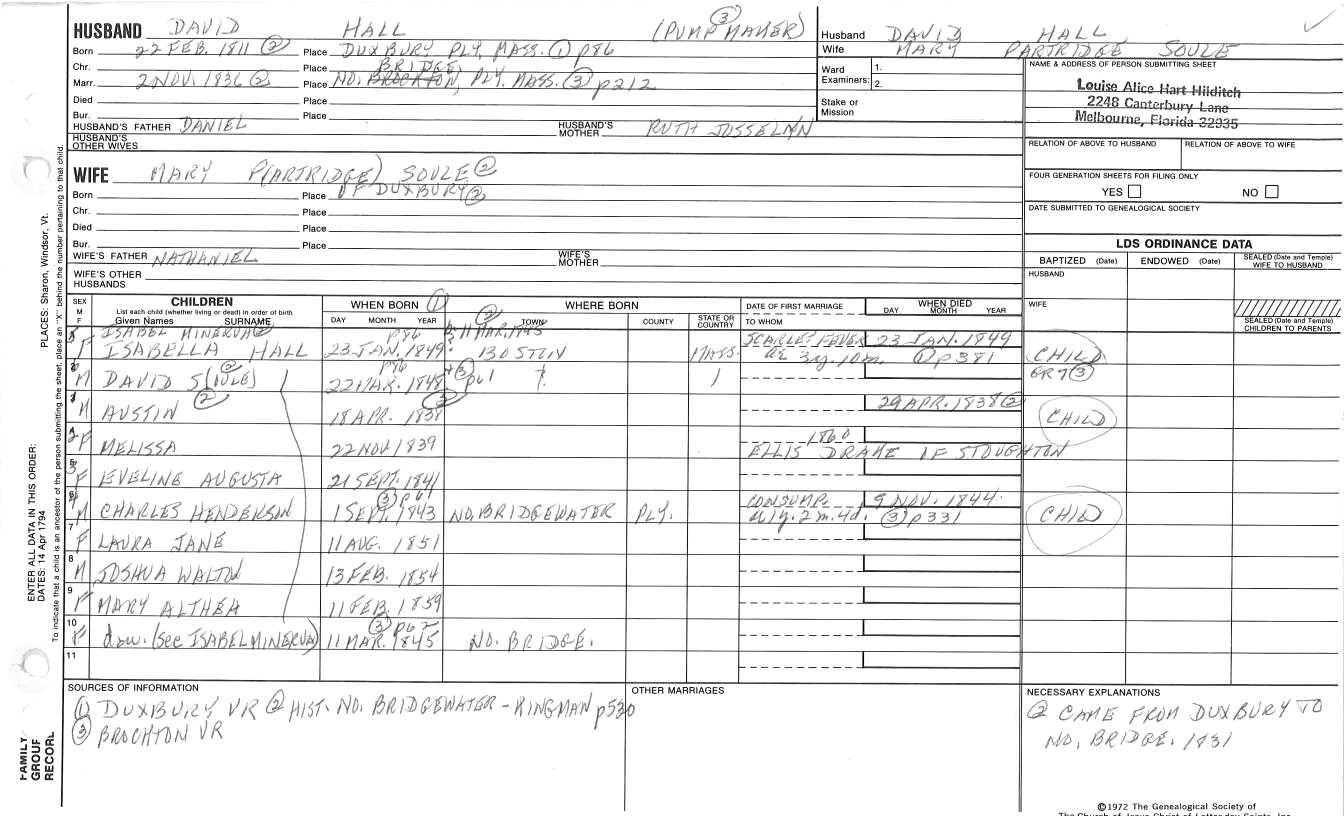 HUSBAND DAVID HALL (PUMP MAKER) ③
Born 22 FEB. 1811 ② Place DUXBURY PLY, MASS. ① p86
Chr. Place BRIDGE,
Marr. 2 NOV. 1836 ② Place NO. BROCKTON, PLY. MASS. ③ p212
Died Place
Bur. Place
HUSBAND'S FATHER DANIEL HUSBAND'S MOTHER RUTH JOSSELYN
HUSBAND'S OTHER WIVES
Husband DAVID HALL
Wife MARY PARTRIDGE SOULE
Ward Examiners: 1.
2.
Stake or Mission
NAME & ADDRESS OF PERSON SUBMITTING SHEET
Louise Alice Hart Hilditch
2248 Canterbury Lane
Melbourne, Florida 32935
RELATION OF ABOVE TO HUSBAND RELATION OF ABOVE TO WIFE
FOUR GENERATION SHEETS FOR FILING ONLY
YES NO
DATE SUBMITTED TO GENEALOGICAL SOCIETY
WIFE MARY P(ARTRIDGE) SOULE ②
Born Place OF DUXBURY ②
Chr. Place
Died Place
Bur. Place
WIFE'S FATHER NATHANIEL WIFE'S MOTHER
WIFE'S OTHER HUSBANDS
LDS ORDINANCE DATA
BAPTIZED (Date) ENDOWED (Date) SEALED (Date and Temple) WIFE TO HUSBAND
HUSBAND
WIFE
SEALED (Date and Temple) CHILDREN TO PARENTS
SEX M F
CHILDREN
List each child (whether living or dead) in order of birth
Given Names SURNAME
WHEN BORN ①
DAY MONTH YEAR
WHERE BORN
② TOWN COUNTY STATE OR COUNTRY
DATE OF FIRST MARRIAGE
TO WHOM
WHEN DIED
DAY MONTH YEAR
ISABEL MINERVA ② p86 b. 11 MAR. 1845 SCARLET FEVER 23 JAN. 1849
F ISABELLA HALL 23 JAN. 1849 ? BOSTON MASS. AE 3y. 10m. ① p381 CHILD
M DAVID S(OULE) ② p86 22 MAR. 1848 + ③ p61 ? GR 7 ③
M AUSTIN ② 18 APR. 1838 ③ 29 APR. 1838 ② CHILD
F MELISSA 22 NOV 1839 1860 ELLIS DRAKE OF STOUGHTON
F EVELINE AUGUSTA 21 SEPT. 1841
M CHARLES HENDERSON ③ p61 1 SEPT. 1843 NO. BRIDGEWATER PLY. CONSUMP. 9 NOV. 1844. a 1y. 2m. 4d. ③ p331 CHILD
7 F LAURA JANE 11 AUG. 1851
8 M JOSHUA WALTON 13 FEB. 1854
9 F MARY ALTHEA 11 FEB. 1859
10 F dau. (see ISABEL MINERVA) ③ p62 11 MAR. 1845 NO. BRIDGE.
11
SOURCES OF INFORMATION
① DUXBURY VR ② HIST. NO. BRIDGEWATER - KINGMAN p530
③ BROCKTON VR
OTHER MARRIAGES
NECESSARY EXPLANATIONS
② CAME FROM DUXBURY TO
NO. BRIDGE. 1831
©1972 The Genealogical Society of
The Church of Jesus Christ of Latter-day Saints, Inc.
PLACES: Sharon, Windsor, Vt.
ENTER ALL DATA IN THIS ORDER:
DATES: 14 Apr 1794
To indicate that a child is an ancestor of the person submitting the sheet, place an "X" behind the number pertaining to that child.
FAMILY
GROUP
RECORD